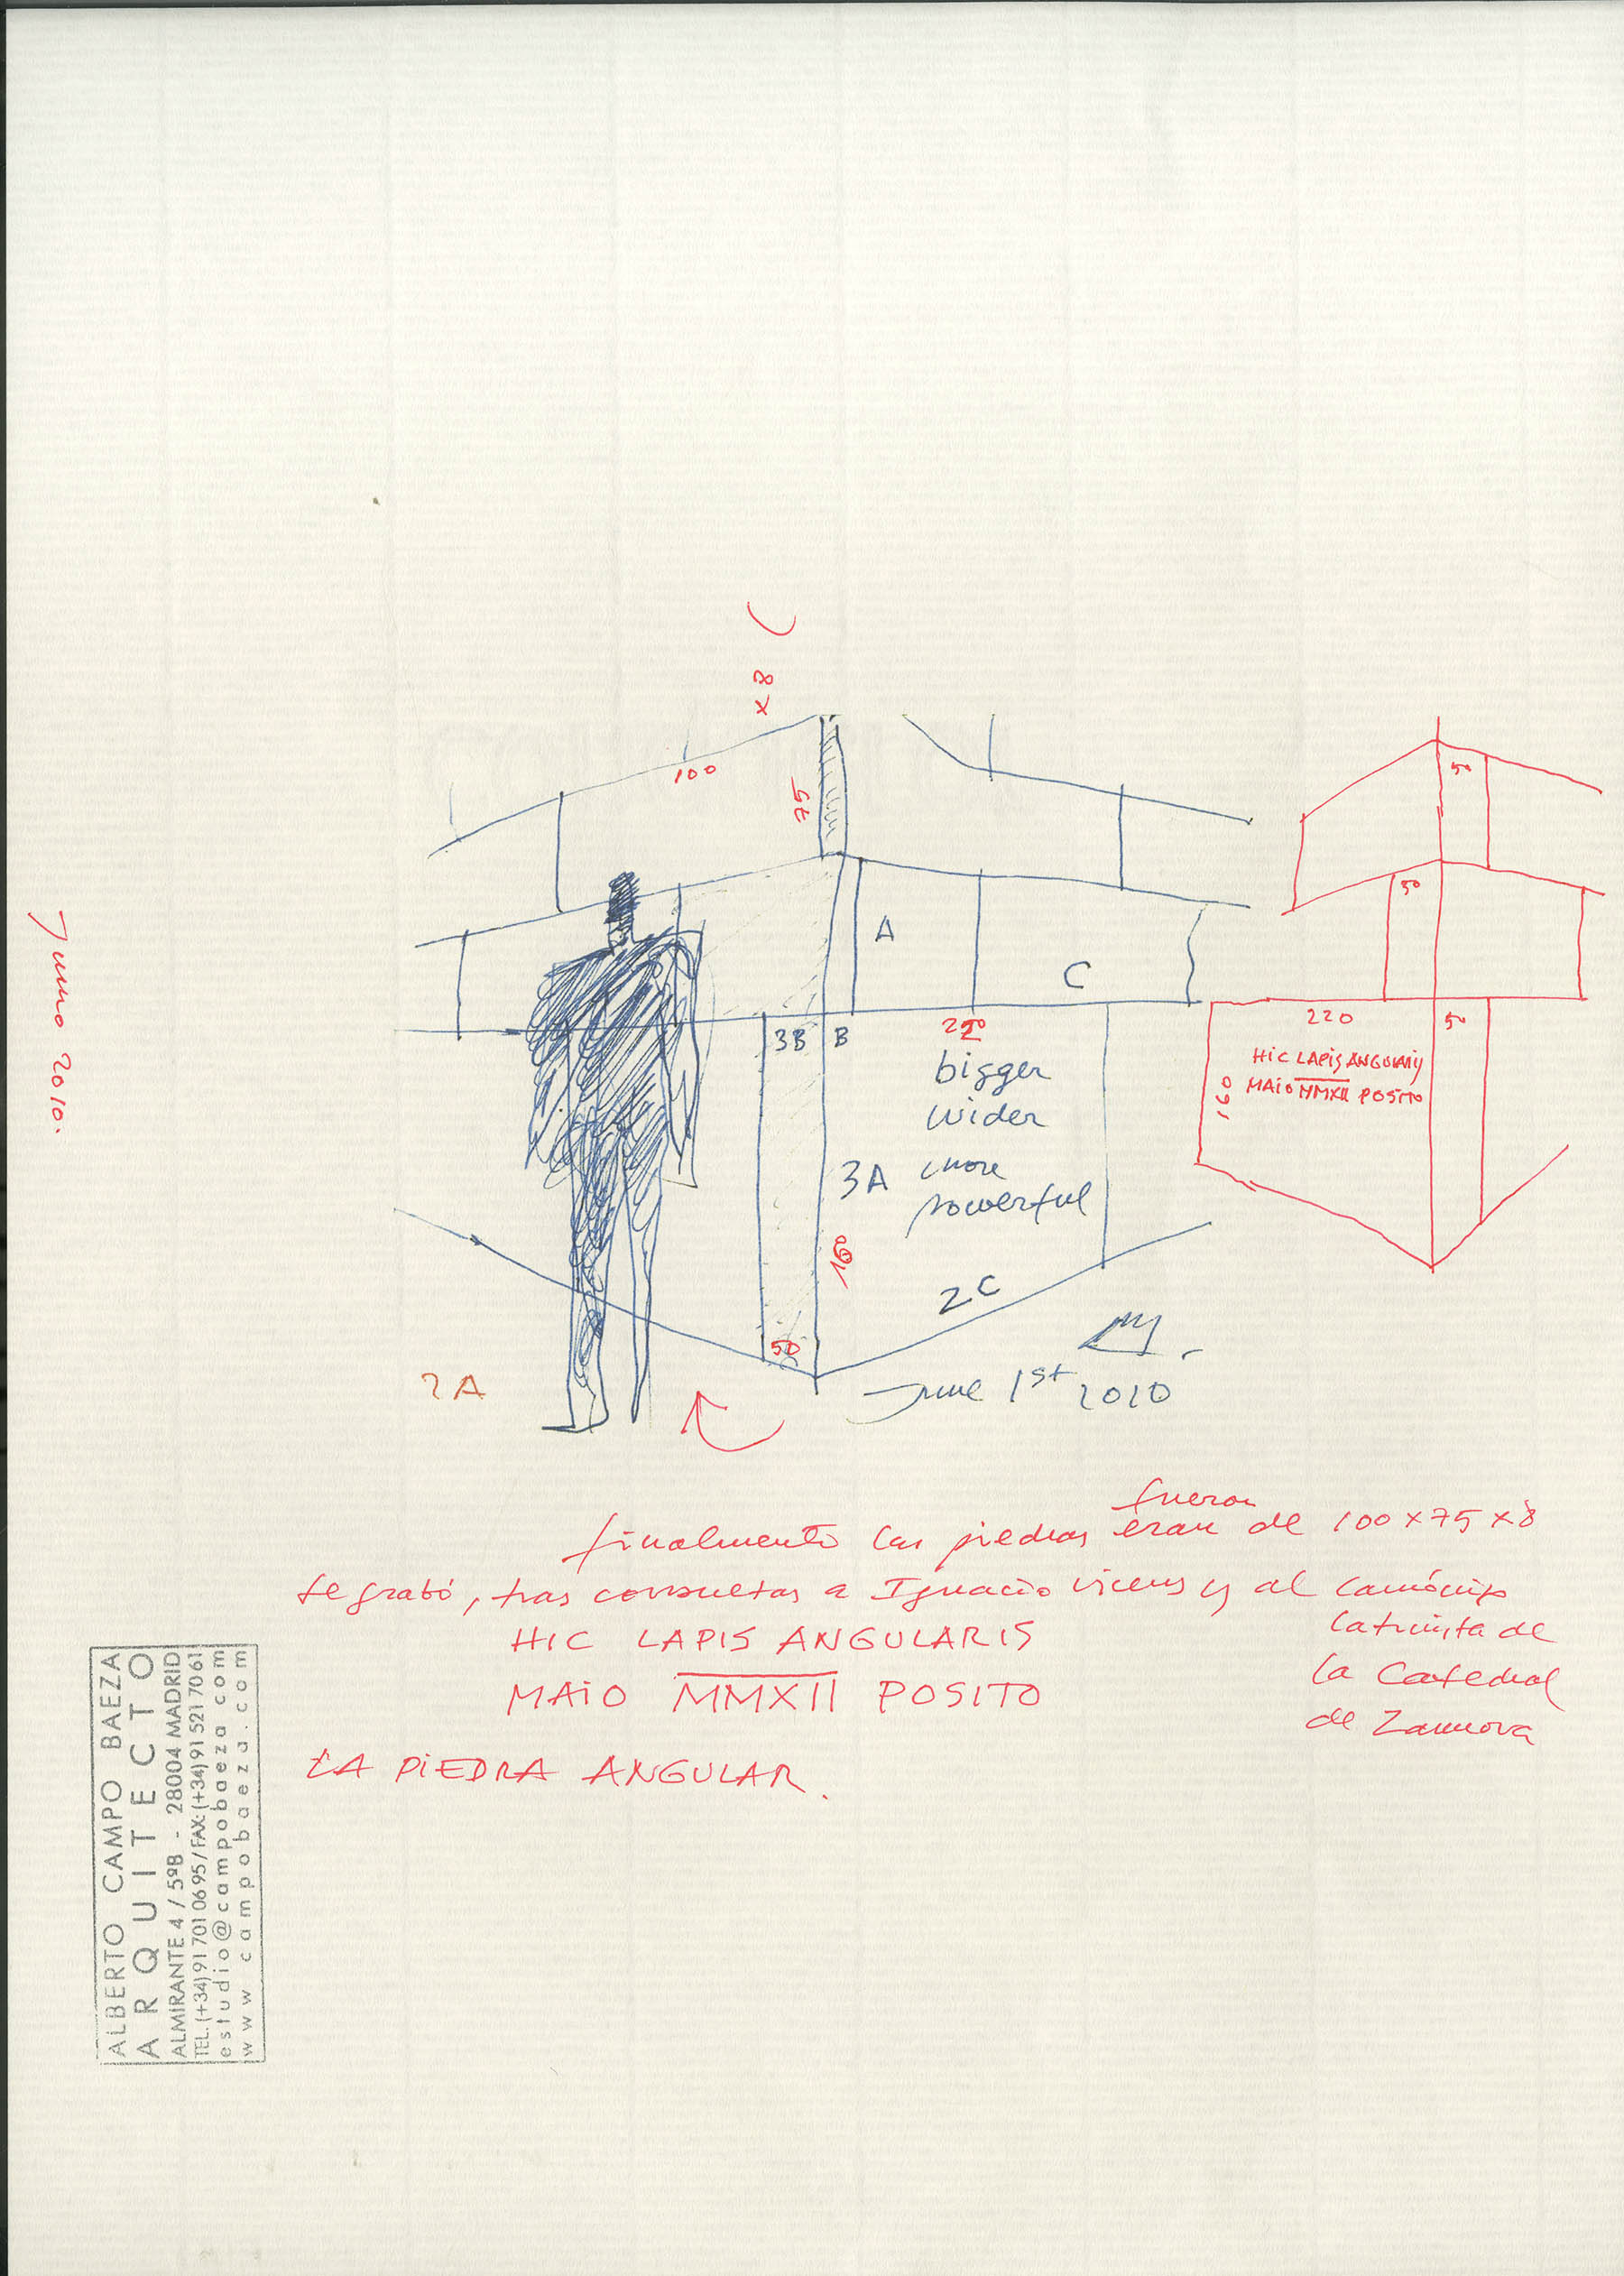 x 8
100
75
50
50
A
C
3B
B
220
50
bigger
wider
more
powerful
HIC LAPIS ANGULARIS
MAIO MMXII POSITO
160
3A
160
2C
50
2A
June 1st 2010
Junio 2010.
fueron
finalmente las piedras eran de 100 x 75 x 8
se grabó, tras consultas a Ignacio Vicens y al canónigo
latinista de
la Catedral
de Zamora
HIC LAPIS ANGULARIS
MAIO MMXII POSITO
LA PIEDRA ANGULAR.
ALBERTO CAMPO BAEZA
ARQUITECTO
ALMIRANTE 4 / 5ºB - 28004 MADRID
TEL. (+34) 91 701 06 95 / FAX: (+34) 91 521 70 61
estudio@campobaeza com
www campobaeza.com